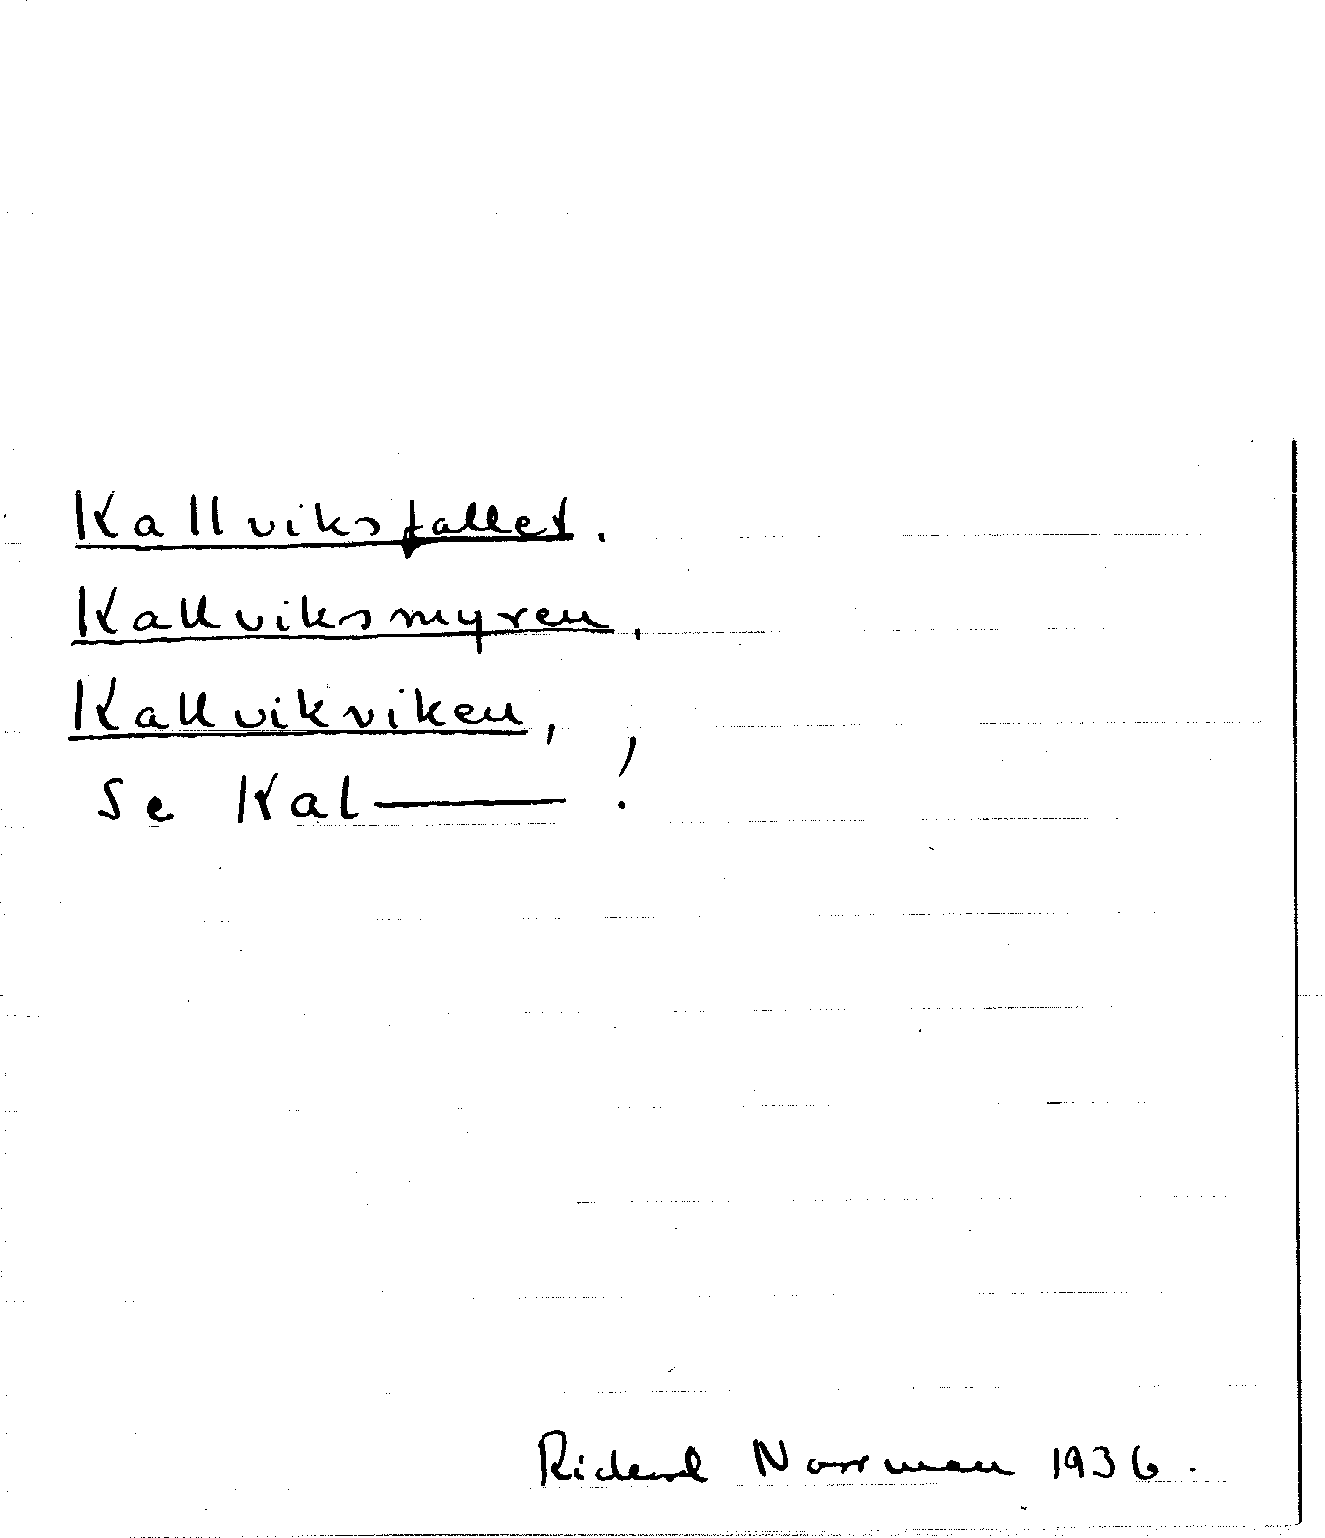 Kallviksfallet.
Kallviksmyren.
Kallvikviken,
Se Kal——— !
Richard Norrman 1936.